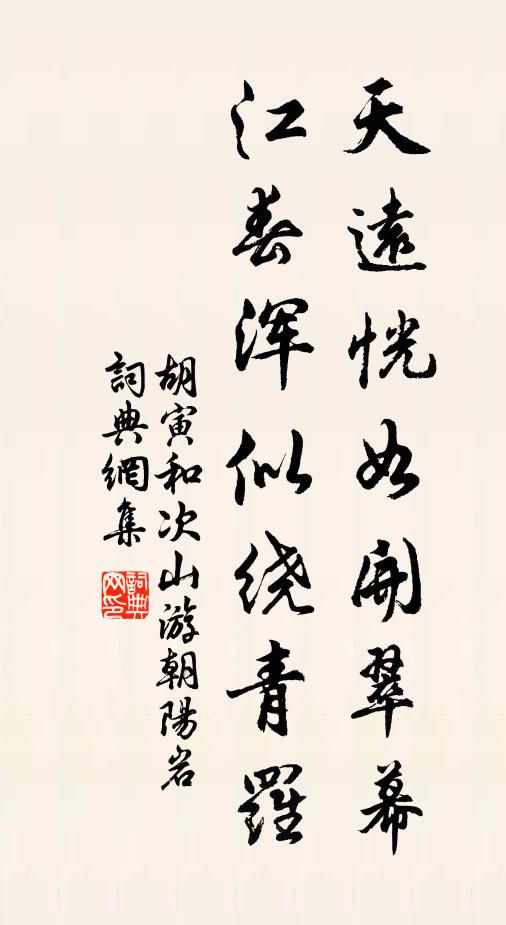 天遠恍如開翠幕
江春浑似绕青羅
胡寅和次山游朝陽岩
詞典網集
詞典網印